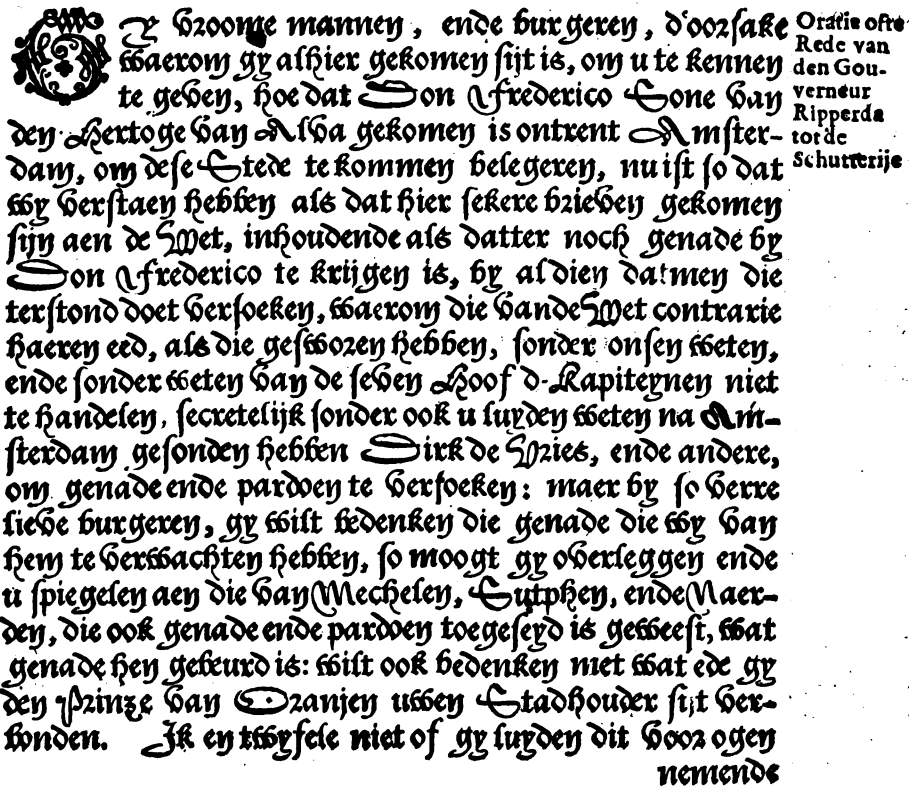 GY vroome mannen, ende burgeren, d'oorsake
waerom gy alhier gekomen sijt is, om u te kennen
te geven, hoe dat Don Frederico Sone van
den Hertoge van Alva gekomen is ontrent Amster-
dam, om dese Stede te kommen belegeren, nu ist so dat
wy verstaen hebben als dat hier sekere brieven gekomen
sijn aen de Wet, inhoudende als datter noch genade by
Don Frederico te krijgen is, by al dien datmen die
terstond doet versoeken, waerom die vande Wet contrarie
haeren eed, als die gesworen hebben, sonder onsen weten,
ende sonder weten van de seven Hoofd-Kapiteynen niet
te handelen, secretelijk sonder ook u luyden weten na Am-
sterdam gesonden hebben Dirk de Vries, ende andere,
om genade ende pardoen te versoeken: maer by so verre
lieve burgeren, gy wilt bedenken die genade die wy van
hem te verwachten hebben, so moogt gy overleggen ende
u spiegelen aen die van Mechelen, Sutphen, ende Naer-
den, die ook genade ende pardoen toegeseyd is geweest, wat
genade hen gebeurd is: wilt ook bedenken met wat ede gy
den Prinze van Oranjen uwen Stadhouder sijt ver-
bonden. Ik en twyfele niet of gy luyden dit voor ogen
nemende
Oratie ofte
Rede van
den Gou-
verneur
Ripperda
tot de
Schutterije